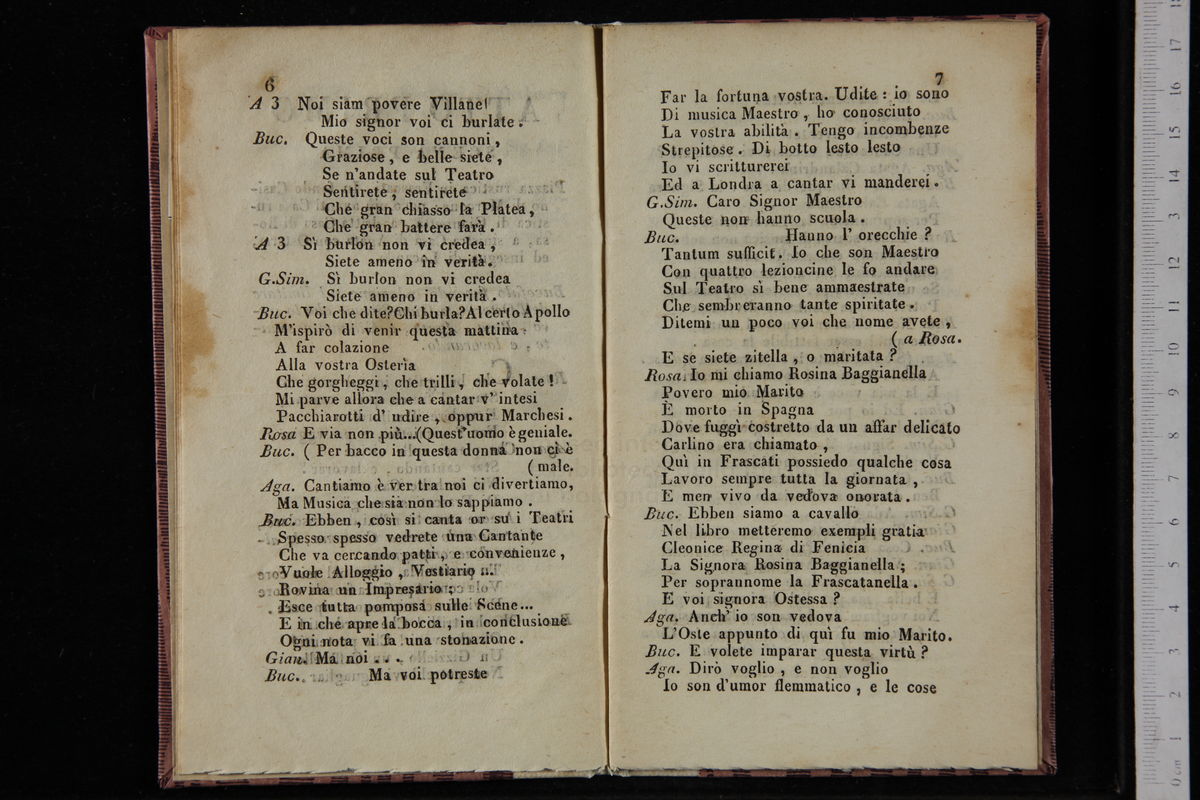 6
A 3 Noi siam povere Villane
Mio signor voi ci burlate.
Buc. Queste voci son cannoni,
Graziose, e belle siete,
Se n'andate sul Teatro
Sentirete, sentirete
Che gran chiasso la Platea,
Che gran battere farà.
A 3 Sì burlon non vi credea,
Siete ameno in verità.
G.Sim. Sì burlon non vi credea
Siete ameno in verità.
Buc. Voi che dite? Chi burla? Al certo Apollo
M'ispirò di venir questa mattina
A far colazione
Alla vostra Osteria
Che gorgheggi, che trilli, che volate!
Mi parve allora che a cantar v' intesi
Pacchiarotti d' udire, oppur Marchesi.
Rosa E via non più...(Quest'uomo è geniale.
Buc. ( Per bacco in questa donna non ci è
( male.
Aga. Cantiamo è ver tra noi ci divertiamo,
Ma Musica che sia non lo sappiamo.
Buc. Ebben, così si canta or su i Teatri
Spesso spesso vedrete una Cantante
Che va cercando patti, e convenienze,
Vuole Alloggio, Vestiario
Rovina un Impresario;
Esce tutta pomposa sulle Scene...
E in che apre la bocca, in conclusione
Ogni nota vi fa una stonazione.
Gian. Ma noi . . .
Buc. Ma voi potreste
7
Far la fortuna vostra. Udite: io sono
Di musica Maestro, ho conosciuto
La vostra abilità. Tengo incombenze
Strepitose. Di botto lesto lesto
Io vi scritturerei
Ed a Londra a cantar vi manderei.
G.Sim. Caro Signor Maestro
Queste non hanno scuola.
Buc. Hanno l' orecchie?
Tantum sufficit. Io che son Maestro
Con quattro lezioncine le fo andare
Sul Teatro sì bene ammaestrate
Che sembreranno tante spiritate.
Ditemi un poco voi che nome avete,
( a Rosa.
E se siete zitella, o maritata?
Rosa. Io mi chiamo Rosina Baggianella
Povero mio Marito
È morto in Spagna
Dove fuggì costretto da un affar delicato
Carlino era chiamato,
Quì in Frascati possiedo qualche cosa
Lavoro sempre tutta la giornata,
E men vivo da vedova onorata.
Buc. Ebben siamo a cavallo
Nel libro metteremo exempli gratia
Cleonice Regina di Fenicia
La Signora Rosina Baggianella;
Per soprannome la Frascatanella.
E voi signora Ostessa?
Aga. Anch' io son vedova
L'Oste appunto di quì fu mio Marito.
Buc. E volete imparar questa virtù?
Aga. Dirò voglio, e non voglio
Io son d'umor flemmatico, e le cose